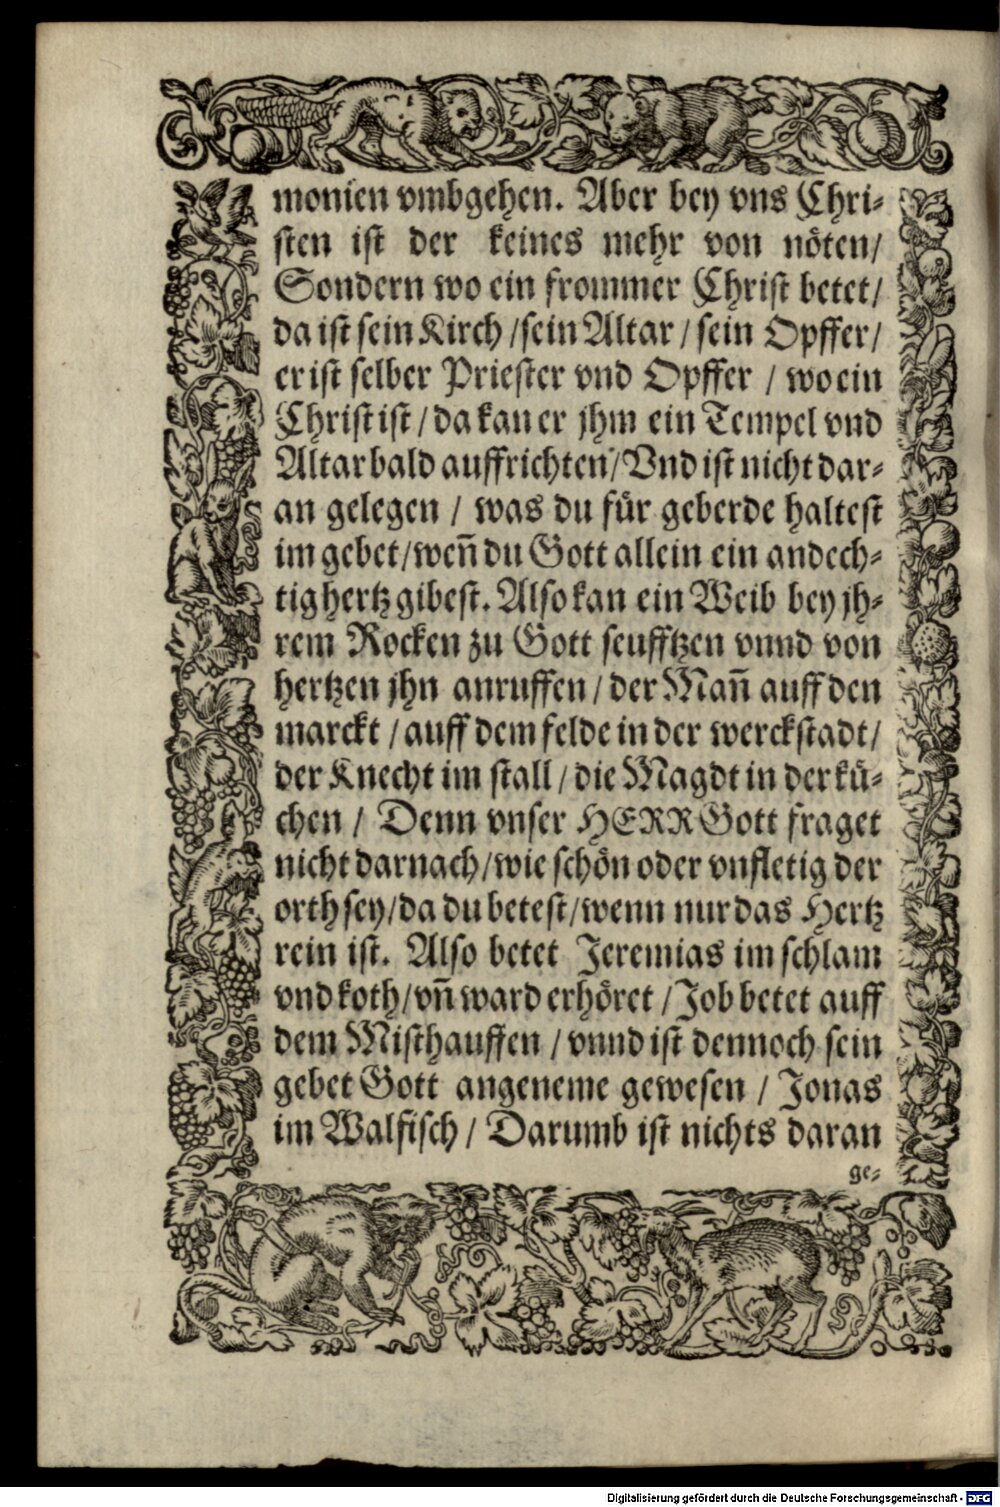 monien vmbgehen. Aber bey vns Chri⸗
sten ist der keines mehr von nöten/
Sondern wo ein frommer Christ betet/
da ist sein Kirch/sein Altar/sein Opffer/
er ist selber Priester vnd Opffer / wo ein
Christ ist/da kan er jhm ein Tempel vnd
Altar bald auffrichten/Vnd ist nicht dar⸗
an gelegen / was du für geberde haltest
im gebet/weñ du Gott allein ein andech⸗
tig hertz gibest. Also kan ein Weib bey jh⸗
rem Rocken zu Gott seufftzen vnnd von
hertzen jhn anruffen/der Mañ auff den
marckt/auff dem felde in der werckstadt/
der Knecht im stall/die Magdt in der kü⸗
chen / Denn vnser HERR Gott fraget
nicht darnach/wie schön oder vnfletig der
orth sey/da du betest/wenn nur das Hertz
rein ist. Also betet Jeremias im schlam
vnd koth/vñ ward erhöret/Job betet auff
dem Misthauffen / vnnd ist dennoch sein
gebet Gott angeneme gewesen / Jonas
im Walfisch / Darumb ist nichts daran
ge⸗
Digitalisierung gefördert durch die Deutsche Forschungsgemeinschaft - DFG